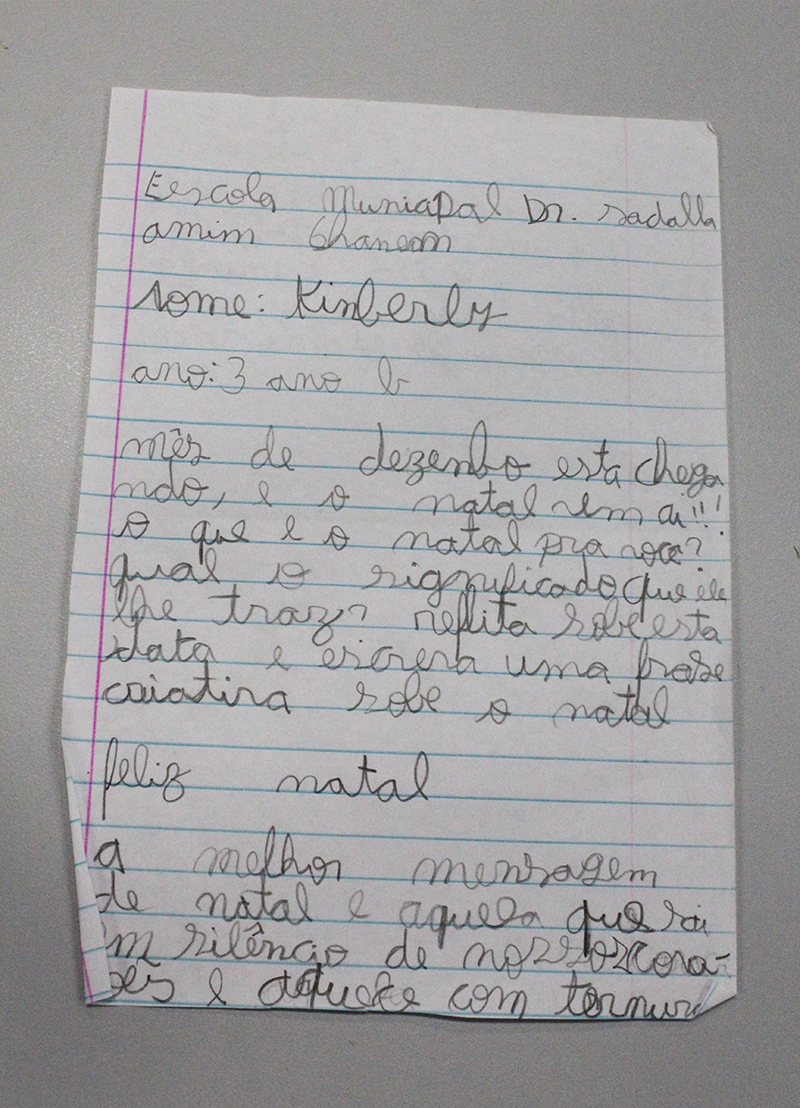 Eescola municipal Dr. sadalla
amim Ghanem
nome: Kinberly
ano: 3 ano b
mês de dezenbo esta chega
ndo, e o natal vem ai!!!
o que e o natal pra voce?
qual o significado que ele
lhe traz? reflita sobe esta
data e escreva uma frase
criativa sobe o natal
feliz natal
a melhor mensagem
de natal e aquela que sai
em silêncio de nossos cora-
ões e aquece com ternura